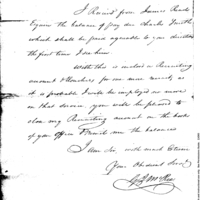 I Received from James Reade
Esquire the balance of pay due Charles Smith
which shall be paid agreeable to your direction
the first time I see him
With this is inclosed a Recruiting
account & Vouchers for one more recruit, as
it is probable I will be employed no more
on that service you will be pleased to
close my Recruiting account on the books
of your office & remit me the balance
I am Sir, with much Esteem
Your Obedient Servt